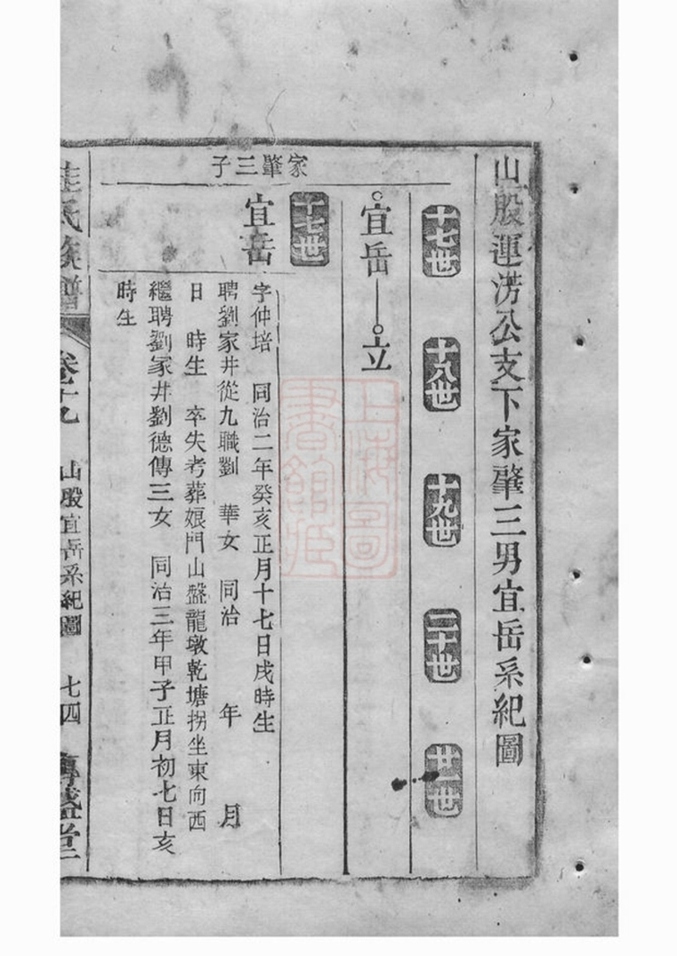 山股運淓公支下家肇三男宜岳系紀圖
十七世 十八世 十九世 二十世 廿一世
宜岳 立
家肇三子
十七世
宜岳
字仲培 同治二年癸亥正月十七日戌時生
聘劉家井從九職劉 華女 同治 年 月
日 時生 卒失考葬娘門山盤龍墩乾塘拐坐東向西
繼聘劉家井劉德傳三女 同治三年甲子正月初七日亥
時生
氏族譜
卷十九
山股宜岳系紀圖
七四
傳盛堂